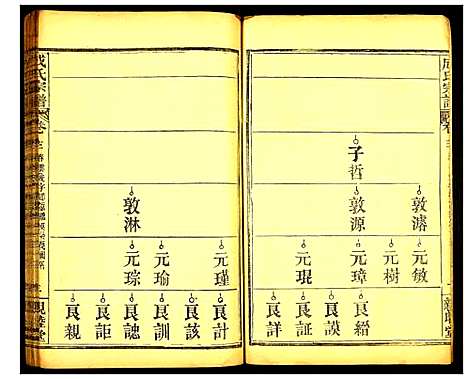 成氏宗譜
子哲
敦濬
敦源
元敏
元樹
元璋
元琨
良縉
良謨
良証
良詳
成氏宗譜
敦淋
元瑾
元瑜
元琮
良計
良該
良訓
良誌
良詎
良親
親睦堂